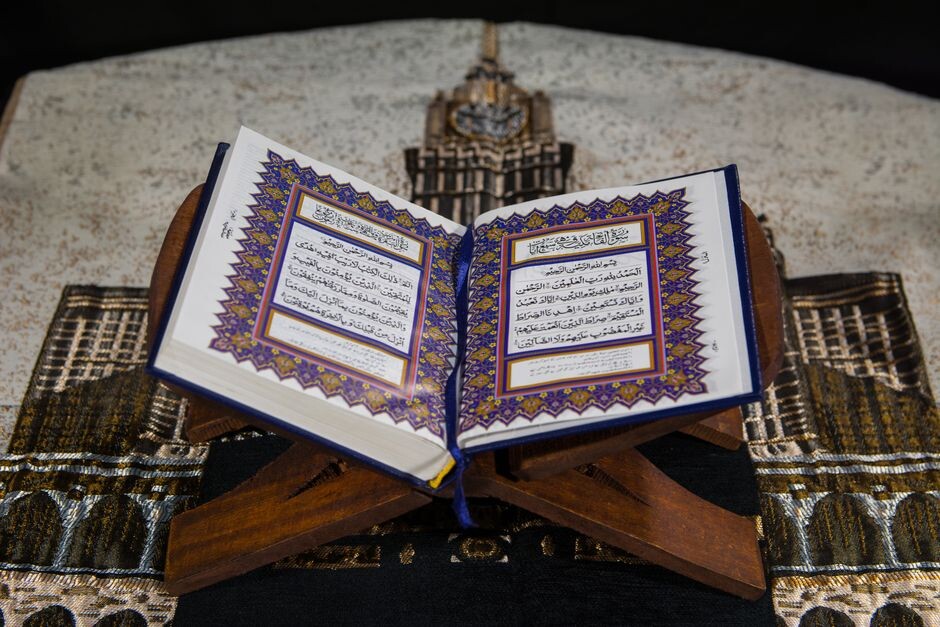 سُوْرَةُ الْفَاتِحَةِ
بِسْمِ اللّٰهِ الرَّحْمٰنِ الرَّحِيْمِ
اَلْحَمْدُ لِلّٰهِ رَبِّ الْعٰلَمِيْنَ الرَّحْمٰنِ
الرَّحِيْمِ مٰلِكِ يَوْمِ الدِّيْنِ اِيَّاكَ نَعْبُدُ
وَاِيَّاكَ نَسْتَعِيْنُ اِهْدِنَا الصِّرَاطَ
الْمُسْتَقِيْمَ صِرَاطَ الَّذِيْنَ اَنْعَمْتَ عَلَيْهِمْ
غَيْرِ الْمَغْضُوْبِ عَلَيْهِمْ وَلَا الضَّآلِّيْنَ
سُوْرَةُ الْبَقَرَةِ
بِسْمِ اللّٰهِ الرَّحْمٰنِ الرَّحِيْمِ
الٓمّٓ ذٰلِكَ الْكِتٰبُ لَا رَيْبَ فِيْهِ هُدًى
لِّلْمُتَّقِيْنَ الَّذِيْنَ يُؤْمِنُوْنَ بِالْغَيْبِ وَ
يُقِيْمُوْنَ الصَّلٰوةَ وَمِمَّا رَزَقْنٰهُمْ يُنْفِقُوْنَ
وَالَّذِيْنَ يُؤْمِنُوْنَ بِمَآ اُنْزِلَ اِلَيْكَ وَمَآ
اُنْزِلَ مِنْ قَبْلِكَ وَبِالْاٰخِرَةِ هُمْ يُوْقِنُوْنَ